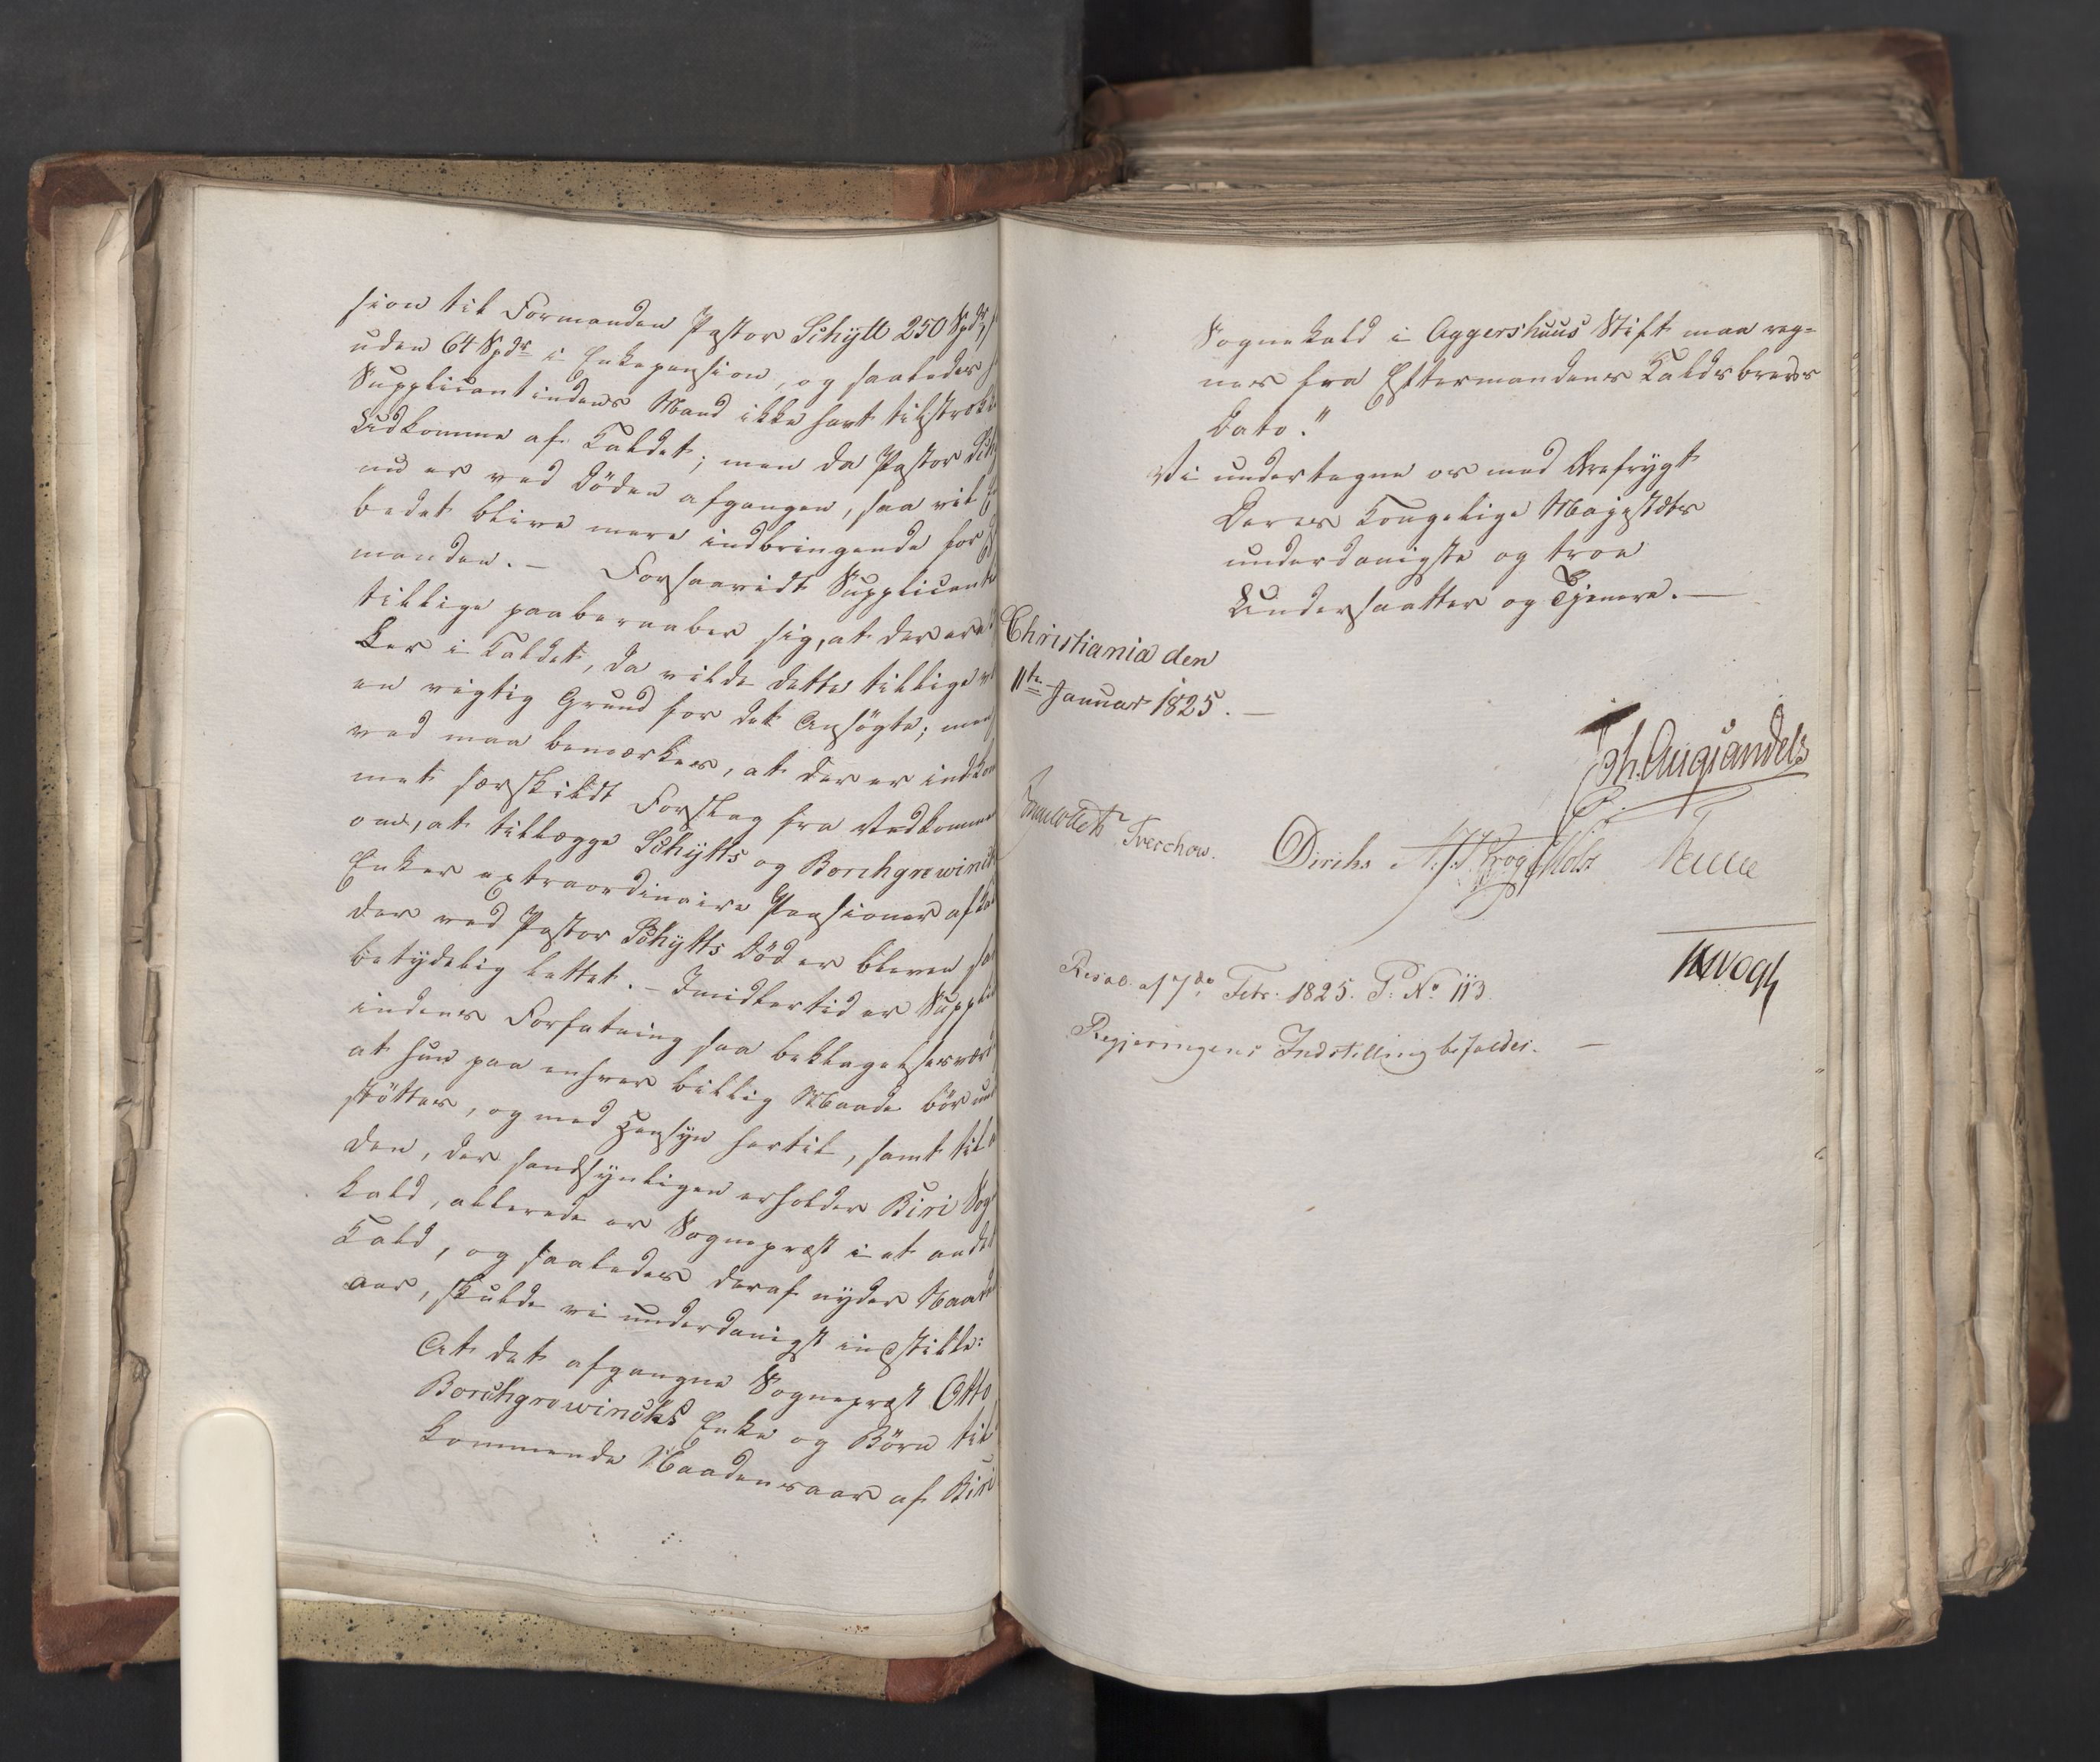 sion til Formanden Pastor Schytt 250 Spdr,
uden 64 Spdr i Enkepension, og saaledes
Supplicantindens Mand ikke havt tilstræk
Udkomme af Kaldet; men da Pastor Sch
nu er ved Döden afgangen, saa vil
bedet blive mere indbringende for
manden. – Forsaavidt Supplicanti
tillige paaberaaber sig, at der ere
ker i Kaldet, da vilde dette tillige
en vigtig Grund for det Ansögte; men
ved maa bemærkes, at der er indkom
met særskildt Forslag fra Vedkomme
om, at tillægge Schytts og Borchgrewinck
Enker extraordinaire Pensioner af Kal
der ved Pastor Schytts Död er bleven saa
betydelig lettet. – Imidlertid er Suppli
indens Forfatning saa beklagelsesværd
at hun paa enhver billig Maade bör und
stöttes, og med Hensyn hertil, samt til a
den, der sandsynligen erholder Biri Sog
Kald, allerede er Sognepræst i et andet
Kald, og saaledes deraf nyder Naade
aar, skulde vi underdanigst indstille:
At det afgangne Sognepræst Otto
Borchgrewincks Enke og Börn til
kommende Naadensaar af Biri
Sognekald i Aggershuus Stift maa reg=
nes fra Eftermandens Kaldsbrevs
Dato."
Vi undertegne os med Ærefrygt
Deres Kongelige Majestæts
underdanigste og troe
Undersaatter og Tjenere. –
Christiania den
11te Januar 1825. –
Joh. Aug. Sandels
Jonas Collett Treschow. Diriks Krogh Holst
JHVogt
Resol. af 7de Febr. 1825. P. No 113.
Regjeringens Indstilling bifaldes. –